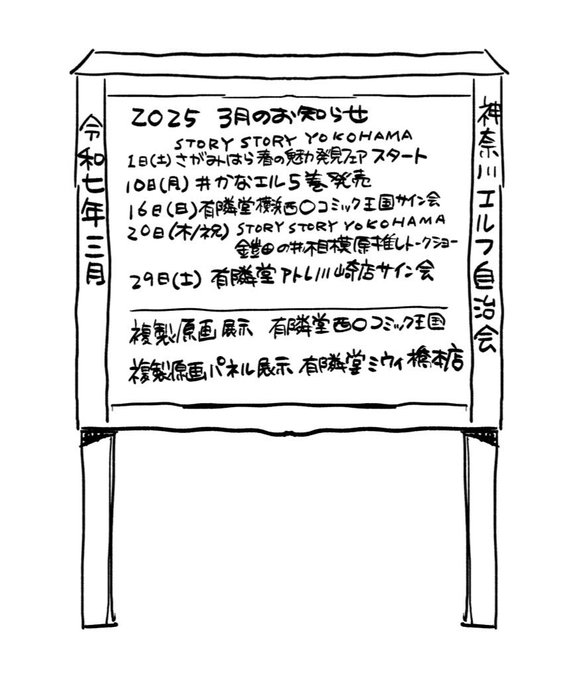 神奈川エルフ自治会
2025 3月のお知らせ
STORY STORY YOKOHAMA
1日(土)さがみはら春の魅力発見フェアスタート
10日(月)#かなエル5巻発売
16日(日)有隣堂横浜西口コミック王国サイン会
20日(木/祝) STORY STORY YOKOHAMA
鎧田の#相模原推しトークショー
29日(土)有隣堂アトレ川崎店サイン会
複製原画展示 有隣堂西口コミック王国
複製原画パネル展示 有隣堂ミウィ橋本店
令和七年三月